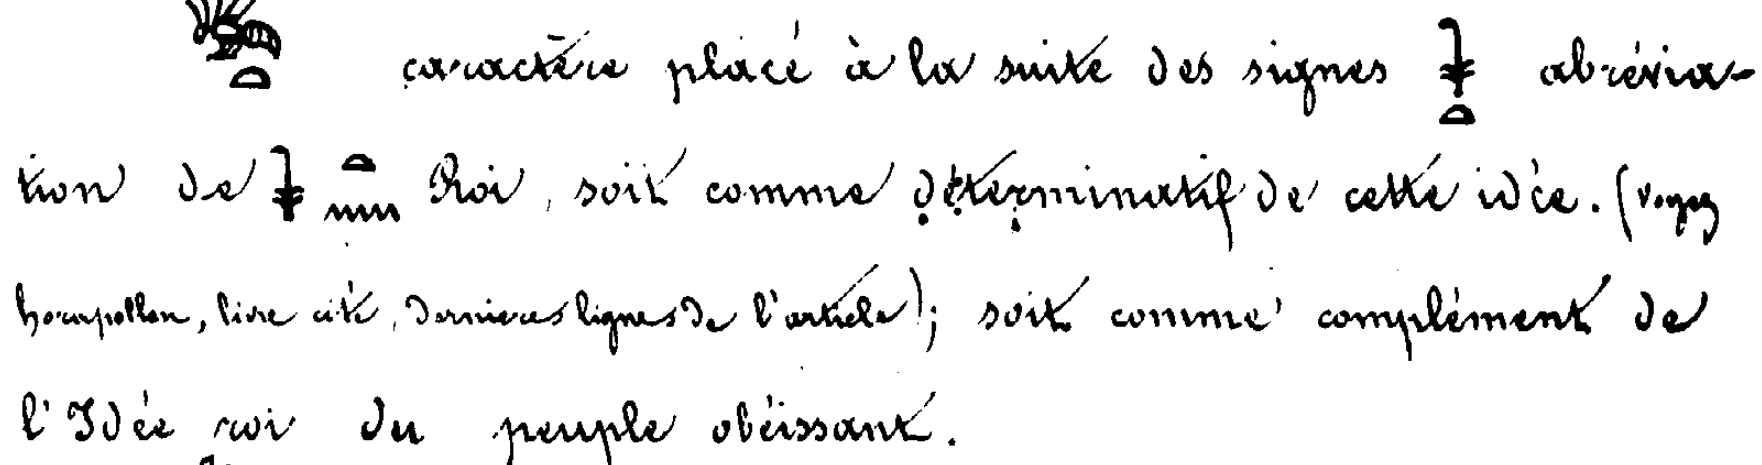 𓆤𓏏 caractère placé à la suite des signes 𓇓𓏏 abrévia-
tion de 𓇓𓏏𓈖 Roi, soit comme déterminatif de cette idée. (Voyez
horapollon, livre cité, dernieres lignes de l'article); soit comme complément de
l'Idée roi du peuple obéissant.